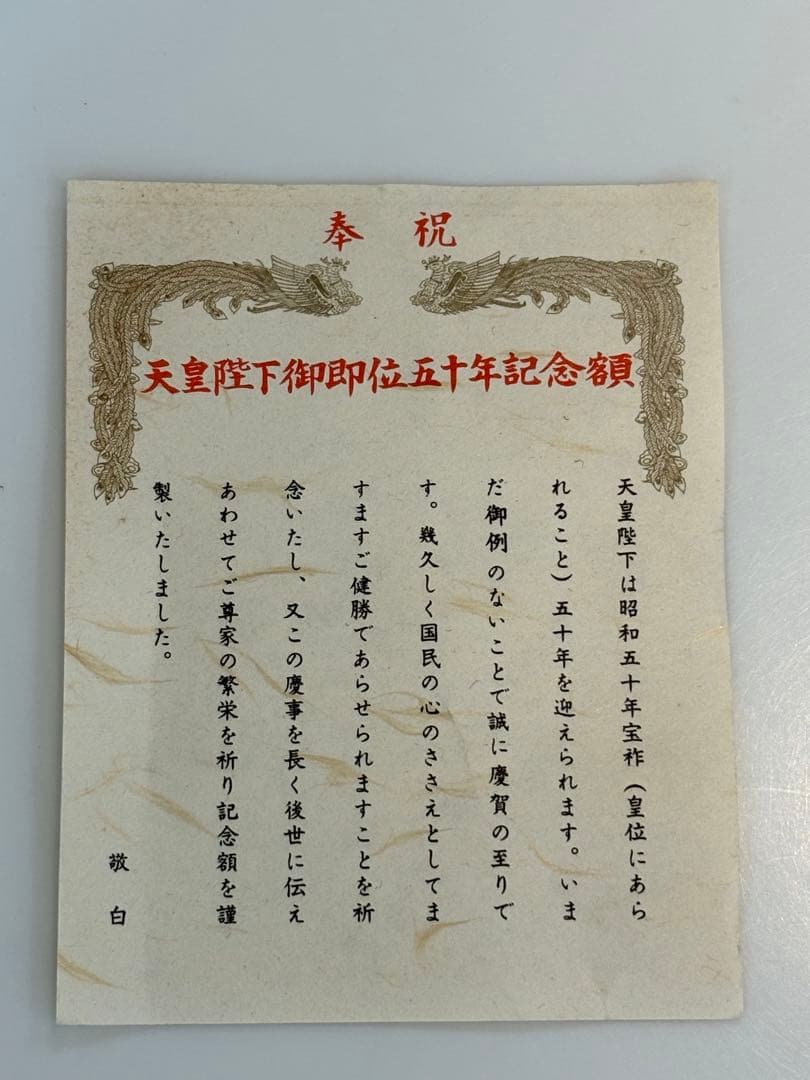 奉祝
天皇陛下御即位五十年記念額
天皇陛下は昭和五十年宝祚（皇位にあら
れること）五十年を迎えられます。いま
だ御例のないことで誠に慶賀の至りで
す。幾久しく国民の心のささえとしてま
すますご健勝であらせられますことを祈
念いたし、又この慶事を長く後世に伝え
あわせてご尊家の繁栄を祈り記念額を謹
製いたしました。
敬白